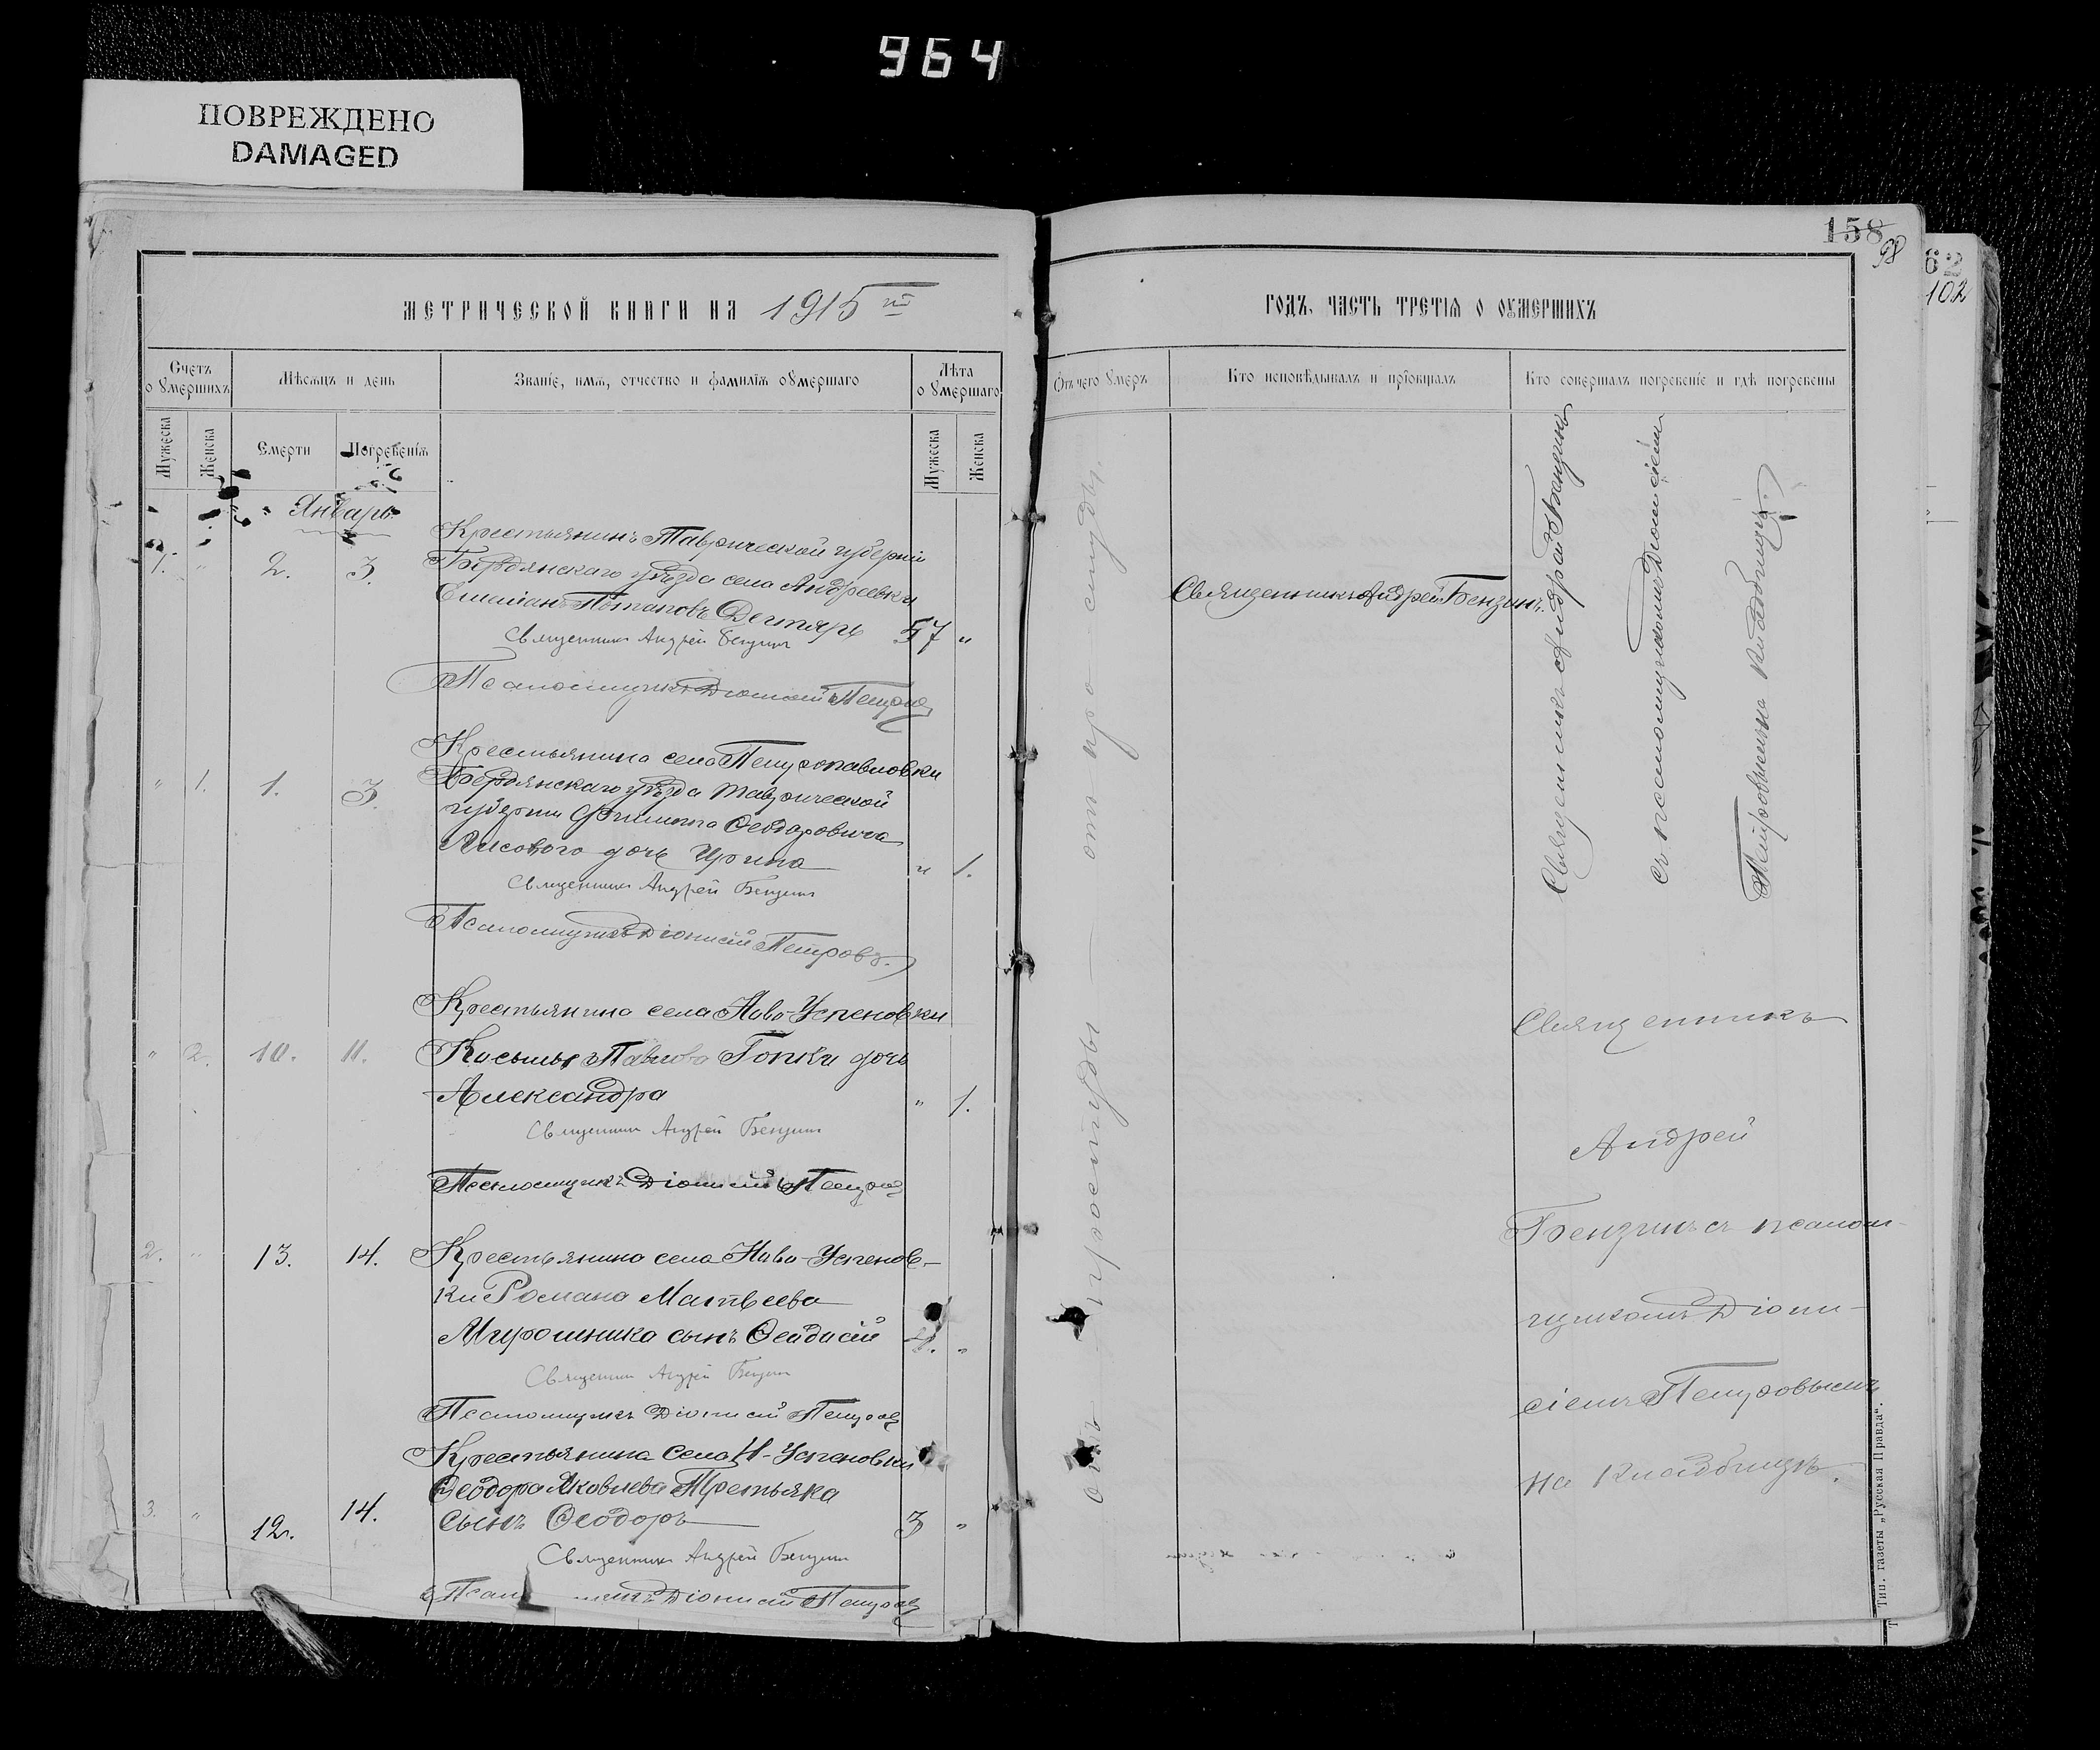 964
ПОВРЕЖДЕНО
DAMAGED
158
98
62
102
МЕТРИЧЕСКОЙ КНИГИ НА 1915 й
Счетъ оумершихъ
Мѣсяцъ и день
Званіе, имя, отчество и фамилія оумершаго
Лѣта оумершаго
Мужеска
Женска
Смерти
Погребенія
Мужеска
Женска
Январь
Крестьянинъ Таврической губерніи
1. " 2. 3. Бердянскаго уѣзда села Андреевки
Емельянъ Потаповъ Дегтярь 57 "
Священникъ Андрей Бензинъ
Псаломщикъ Діонисій Петровъ
Крестьянина села Петропавловки
" 1. 1. 3. Бердянскаго уѣзда Таврической
губерніи Филиппа Ѳеодоровича
Лисового дочь Ирина " 1.
Священникъ Андрей Бензинъ
Псаломщикъ Діонисій Петровъ.
Крестьянина села Ново-Успеновки
" 2. 10. 11. Косьмы Павлова Гопки дочь
Александра " 1.
Священникъ Андрей Бензинъ
Псаломщикъ Діонисій Петровъ
2. " 13. 14. Крестьянина села Ново-Успенов-
ки Романа Матвеева
Мирошника сынъ Ѳеодосій "
Священникъ Андрей Бензинъ
Псаломщикъ Діонисій Петровъ
Крестьянина села Н-Успеновки
Ѳеодора Яковлева Третьяка
3. " 12. 14. сынъ Ѳеодоръ 3 "
Священникъ Андрей Бензинъ
Псаломщикъ Діонисій Петровъ
ГОДЪ, ЧАСТЬ ТРЕТІЯ О ОУМЕРШИХЪ
Отъ чего умеръ
Кто исповѣдывалъ и пріобщалъ
Кто совершалъ погребеніе и гдѣ погребены
отъ простуды — от простуды.
Священникъ Андрей Бензинъ.
Священникъ Андрей Бензинъ
съ псаломщикомъ Діонисіем
Петровымъ на кладбищѣ.
Священникъ
Андрей
Бензинъ съ псалом-
щикомъ Діони-
сіемъ Петровымъ
на кладбищѣ.
Тип. газеты „Русская Правда“.